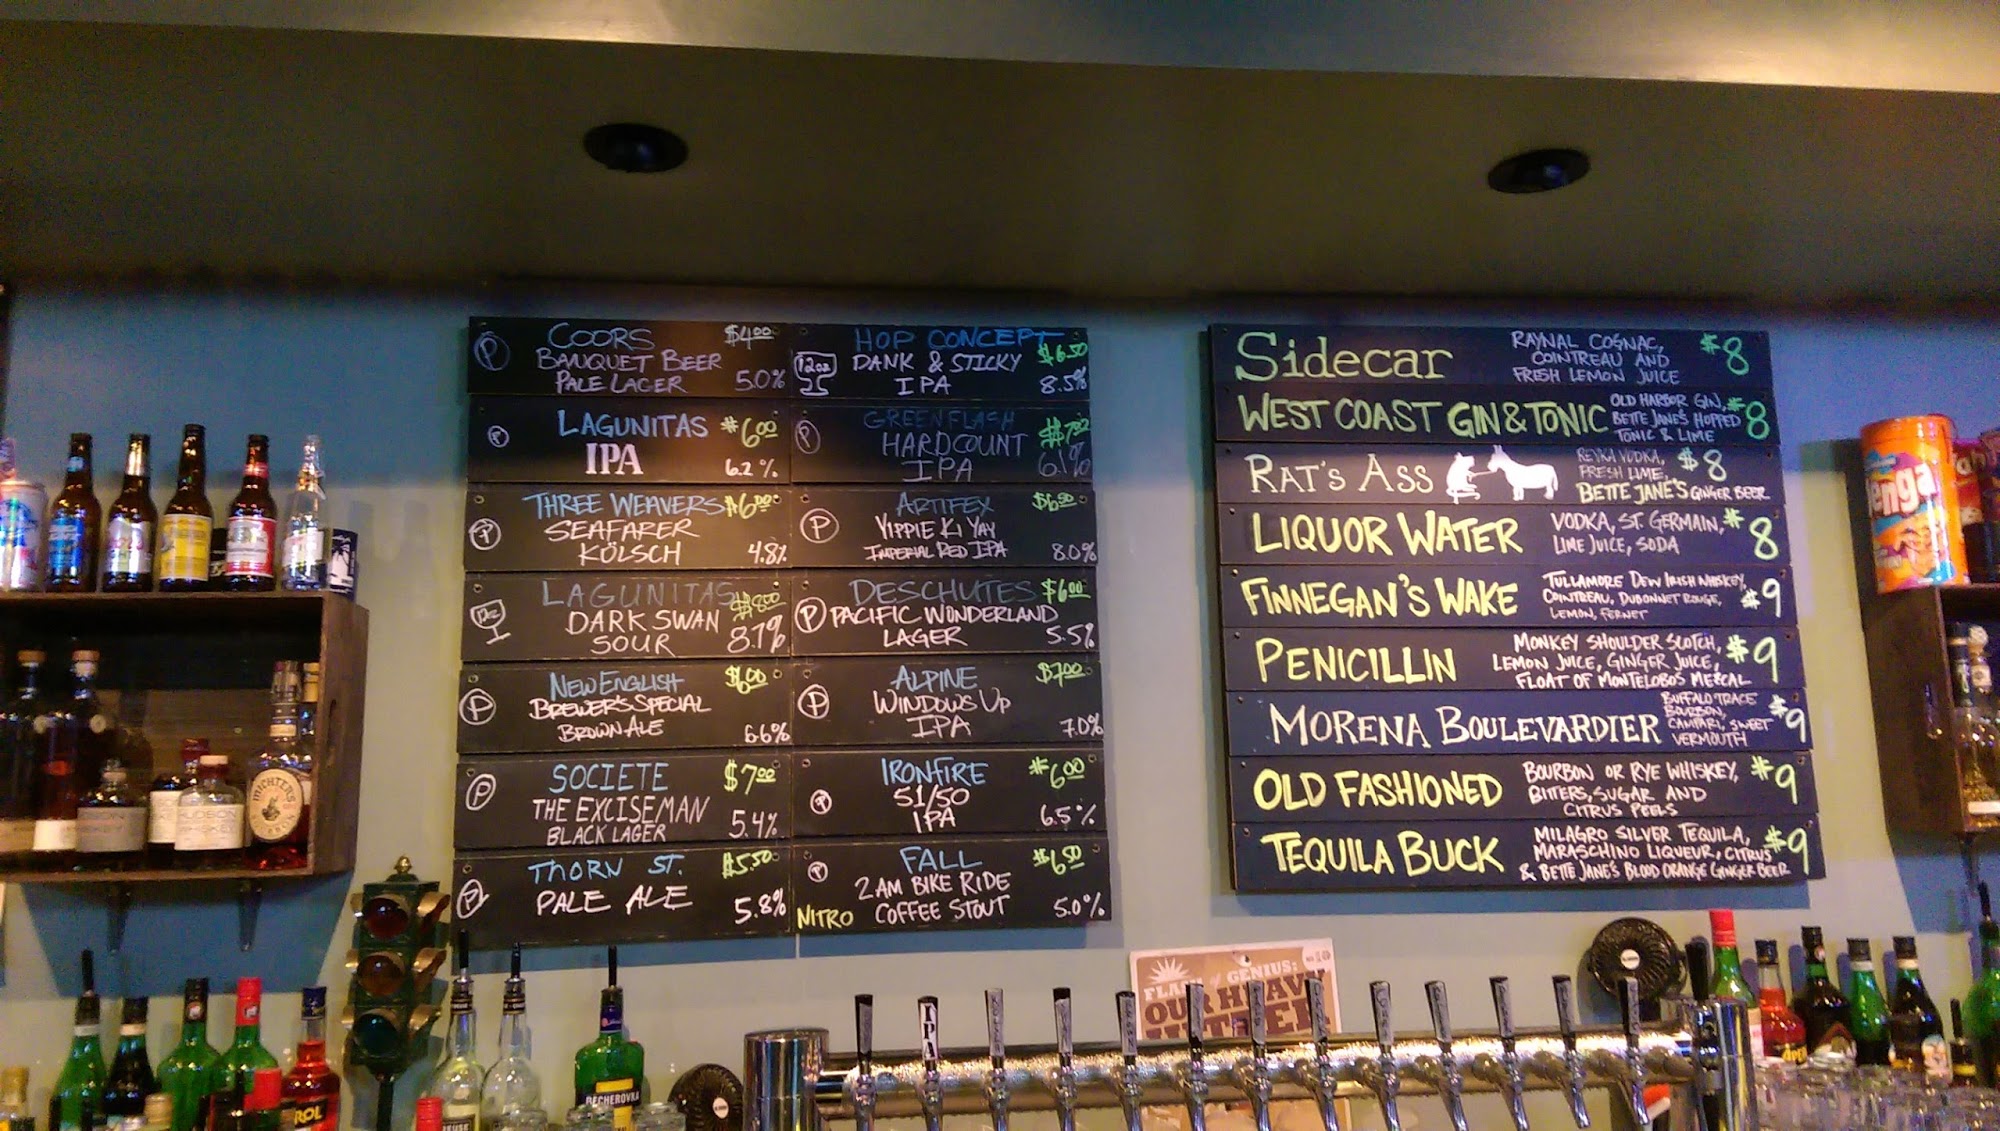 COORS $4.00
BANQUET BEER
PALE LAGER 5.0%
P
LAGUNITAS $6.00
IPA 6.2%
P
THREE WEAVERS $6.00
SEAFARER
KÖLSCH 4.8%
P
LAGUNITAS $8.00
DARK SWAN
SOUR 8.7%
12oz
NEW ENGLISH $6.00
BREWER'S SPECIAL
BROWN ALE 6.6%
P
SOCIETE $7.00
THE EXCISEMAN
BLACK LAGER 5.4%
P
THORN ST. $5.50
PALE ALE 5.8%
P
HOP CONCEPT $6.50
DANK & STICKY
IPA 8.5%
12oz
GREENFLASH
HARDCOUNT
IPA 6.1%
P
ARTIFEX $6.50
YIPPIE KI YAY
IMPERIAL RED IPA 8.0%
P
DESCHUTES $6.00
PACIFIC WONDERLAND
LAGER 5.5%
P
ALPINE $7.00
WINDOWS UP
IPA 7.0%
P
IRONFIRE $6.00
51/50
IPA 6.5%
P
FALL $6.50
2AM BIKE RIDE
NITRO COFFEE STOUT 5.0%
P
Sidecar $8
RAYNAL COGNAC,
COINTREAU AND
FRESH LEMON JUICE
WEST COAST GIN & TONIC $8
OLD HARBOR GIN,
BETTE JANE'S HOPPED
TONIC & LIME
RAT'S ASS $8
REYKA VODKA,
FRESH LIME,
BETTE JANE'S GINGER BEER
LIQUOR WATER $8
VODKA, ST. GERMAIN,
LIME JUICE, SODA
FINNEGAN'S WAKE $9
TULLAMORE DEW IRISH WHISKEY,
COINTREAU, DUBONNET ROUGE,
LEMON, FERNET
PENICILLIN $9
MONKEY SHOULDER SCOTCH,
LEMON JUICE, GINGER JUICE,
FLOAT OF MONTELOBOS MEZCAL
MORENA BOULEVARDIER $9
BUFFALO TRACE
BOURBON,
CAMPARI, SWEET
VERMOUTH
OLD FASHIONED $9
BOURBON OR RYE WHISKEY,
BITTERS, SUGAR AND
CITRUS PEELS
TEQUILA BUCK $9
MILAGRO SILVER TEQUILA,
MARASCHINO LIQUEUR, CITRUS
& BETTE JANE'S BLOOD ORANGE GINGER BEER
enga
MICHTER'S
HUDSON
WHISKEY
BECHEROVKA
ROL
IPA
GENIUS:
OUR HEAVY